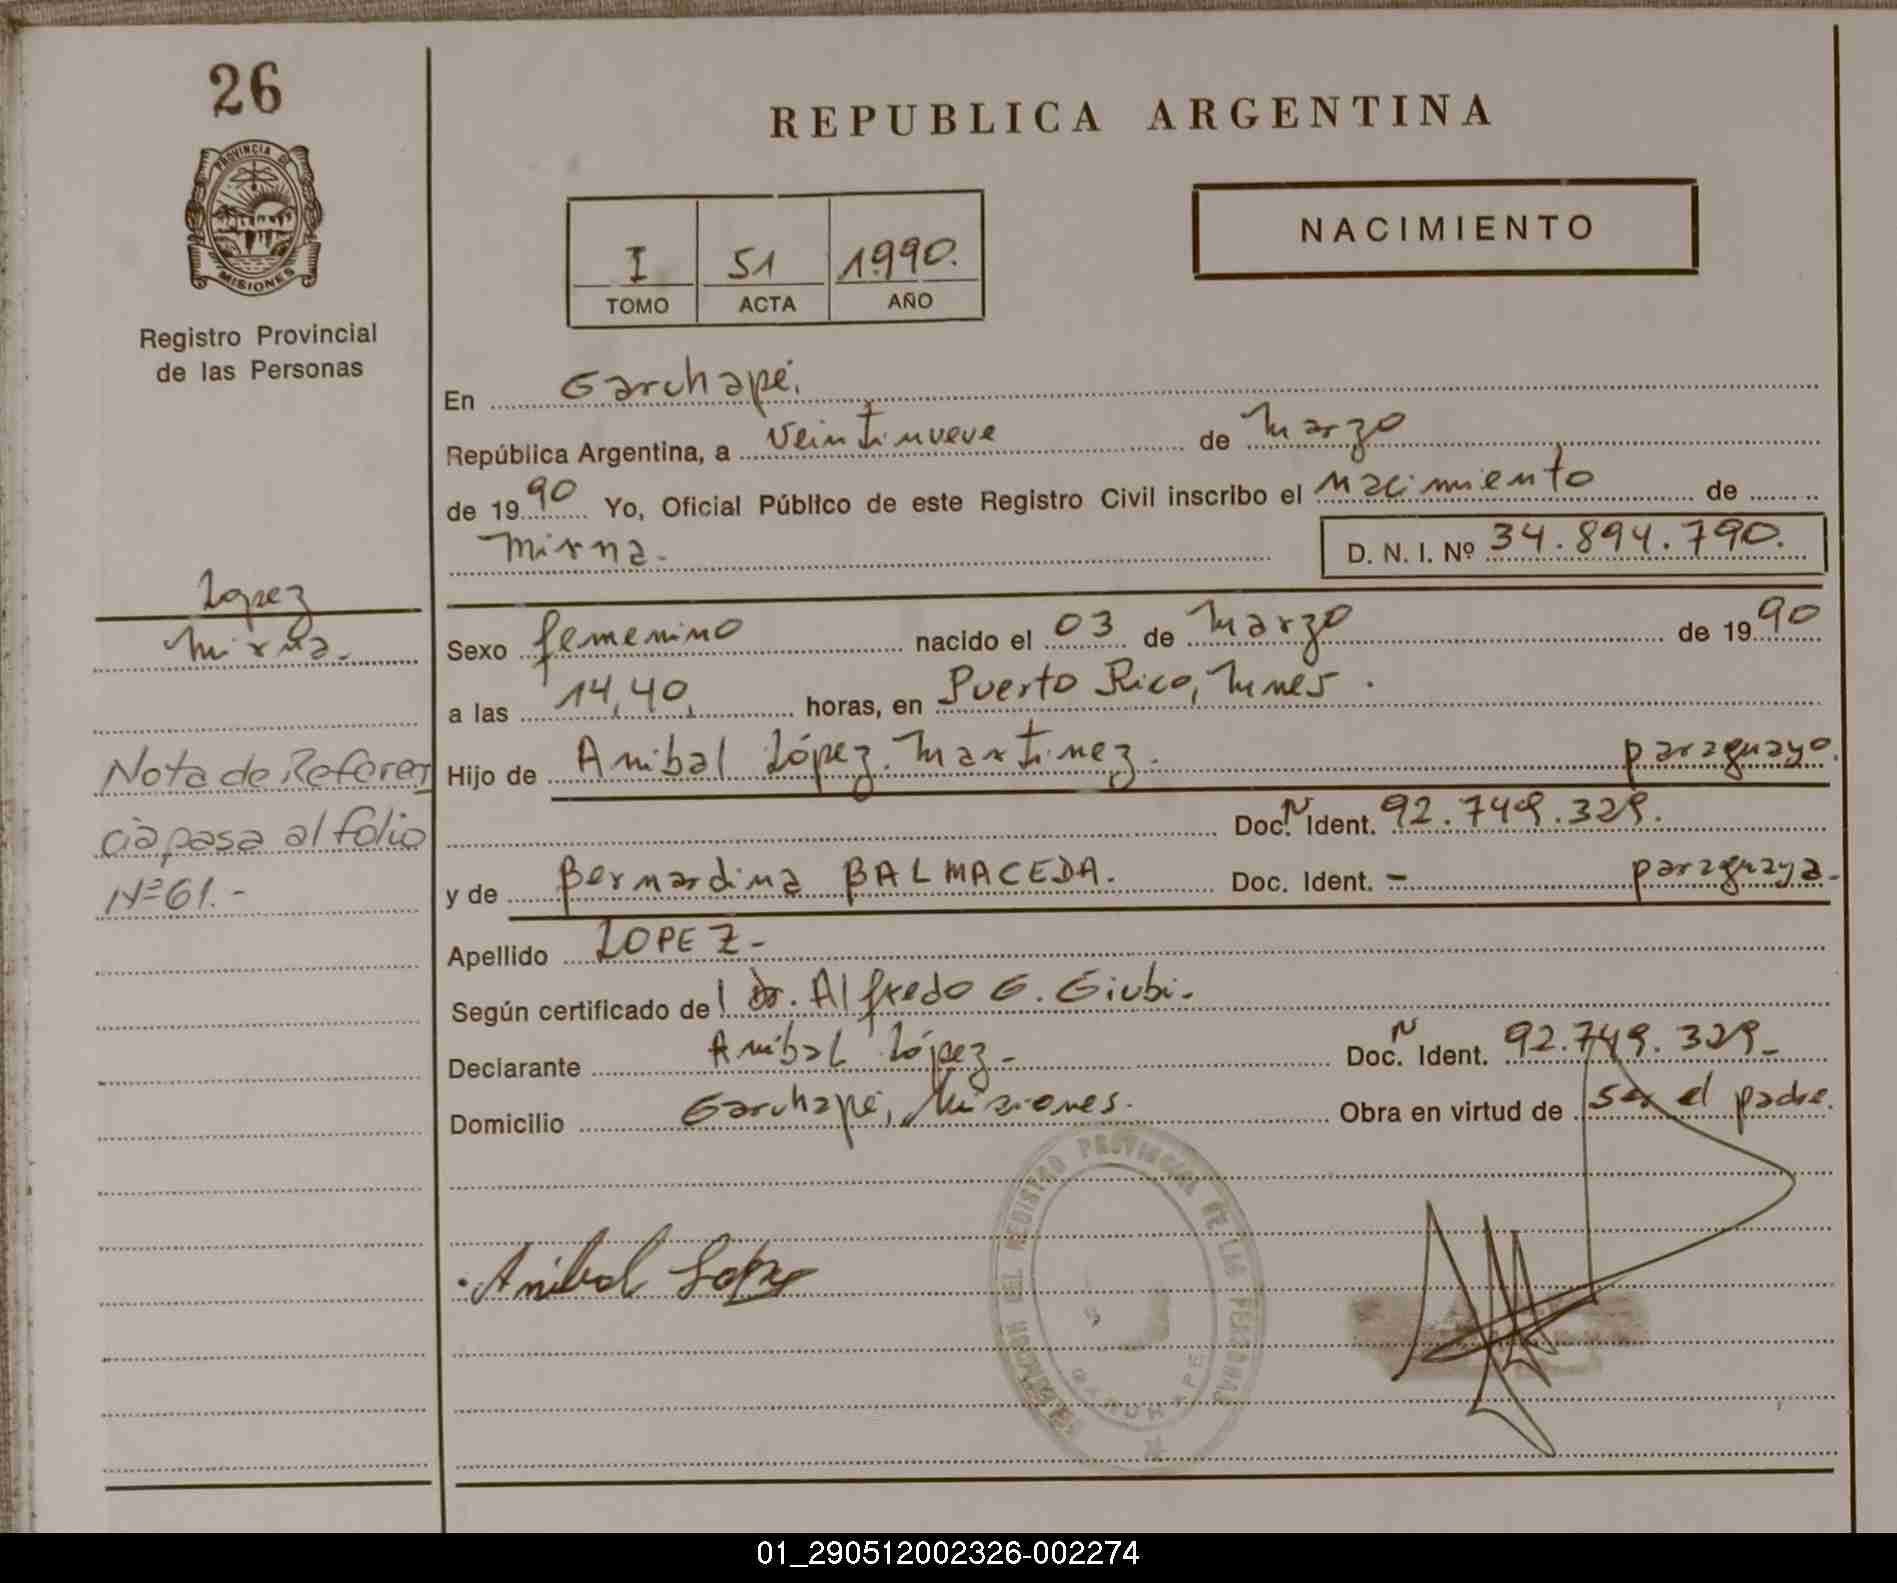 26
PROVINCIA DE
MISIONES
Registro Provincial
de las Personas
REPUBLICA ARGENTINA
NACIMIENTO
I 51 1990.
TOMO ACTA AÑO
En Garuhapé.
República Argentina, a veintinueve de Marzo
de 1990 Yo, Oficial Público de este Registro Civil inscribo el nacimiento de
Mirna.
D. N. I. Nº 34.894.790.
Lopez
Mirna.
Nota de Referen
cia pasa al folio
Nº 61.-
Sexo femenino nacido el 03 de Marzo de 1990
a las 14,40, horas, en Puerto Rico, Mnes.
Hijo de Anibal López Martinez. paraguayo.
Doc. N Ident. 92.749.329.
y de Bernardina BALMACEDA. Doc. Ident. - paraguaya.
Apellido LOPEZ-
Según certificado del Dr. Alfredo G. Giubi.
Declarante Anibal López- Doc. N Ident. 92.749.329-
Domicilio Garuhapé, Misiones. Obra en virtud de ser el padre.
Anibal Lopez
DEL REGISTRO PROVINCIAL DE LAS PERSONAS
GARUHAPE
01_290512002326-002274